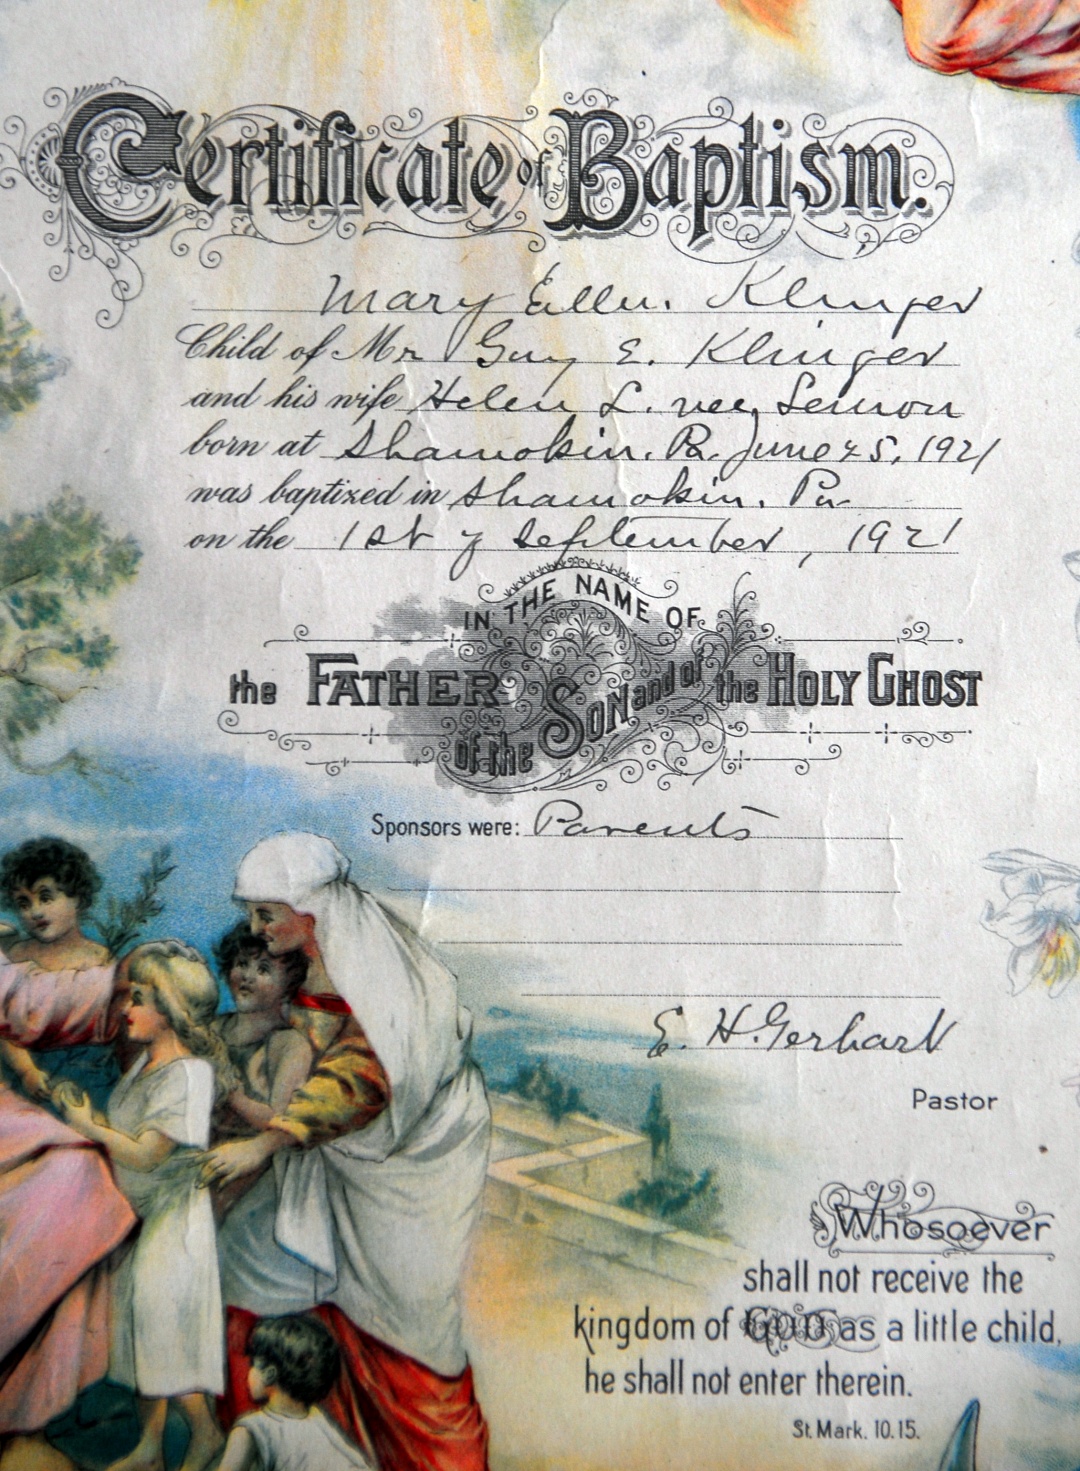 Certificate of Baptism.
Mary Ellen. Klinger
Child of Mr Guy E. Klinger
and his wife Helen L. nee, Lemon
born at Shamokin. Pa. June 25, 1921
was baptized in Shamokin. Pa
on the 1st of September, 1921
IN THE NAME OF
the FATHER of the SON and of the HOLY GHOST
Sponsors were: Parents
E. H. Gerhart
Pastor
Whosoever
shall not receive the
kingdom of GOD as a little child,
he shall not enter therein.
St. Mark. 10.15.